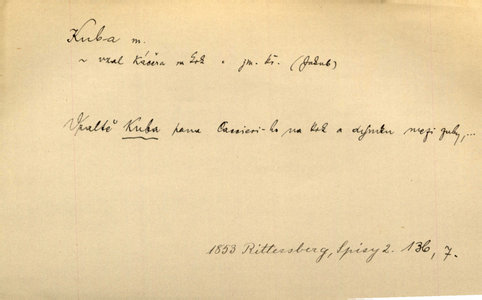 Kuba m.
~ vzal Káčera na krk • jm. kř. (Jakub)
Vzaltě Kuba pana Cassieri-ho na krk a dýmku mezi zuby,...
1853 Rittersberg, Spisy 2. 136, 7.